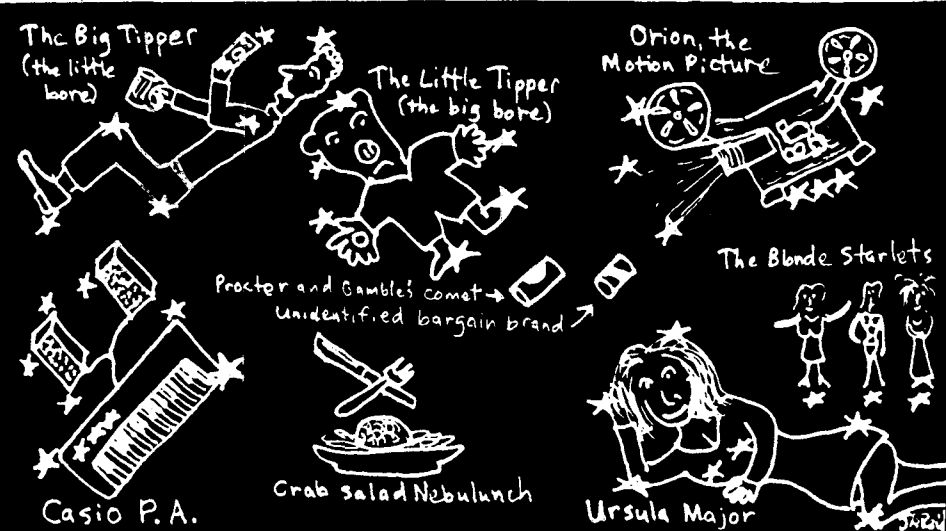 The Big Tipper
(the little
bore)
The Little Tipper
(the big bore)
Orion, the
Motion Picture
The Blonde Starlets
Procter and Gamble's comet
Unidentified bargain brand
Casio P.A.
Crab salad Nebulunch
Ursula Major